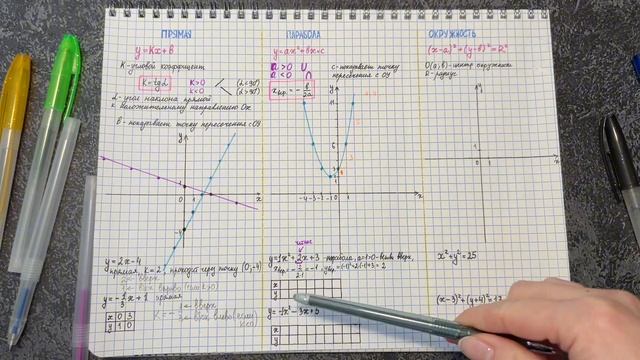 ПРЯМАЯ
y=kx+b
K-угловой коэффициент
K=tgα
K>0
K<0
(α<90°)
(α>90°)
α-угол наклона прямой
к положительному направлению Ox
b-показывает точку пересечения с OY
y
x
1
0
1
-4
y=2x-4
прямая, K=2, проходит через точку (0;-4)
y=-1/3x+1 прямая
x 0 3
y 1 0
ПАРАБОЛА
y=ax²+bx+c
a>0 ∪
a<0 ∩
c-показывает точку
пересечения с OY
xвер.=-b/2a
y
11
6
3
2
1
-4 -3 -2 -1 0 1
x
y=1x²+2x+3 -парабола, a=1>0-ветви вверх,
xвер=-2/2·1=-1, yвер=(-1)²+2·(-1)+3=2
x
y
y=-1x²-3x+5
x
y
ОКРУЖНОСТЬ
(x-a)²+(y-b)²=R²
O(a;b)-центр окружности
R-радиус
y
1
0
1
x
x²+y²=25
(x-3)²+(y+4)²=